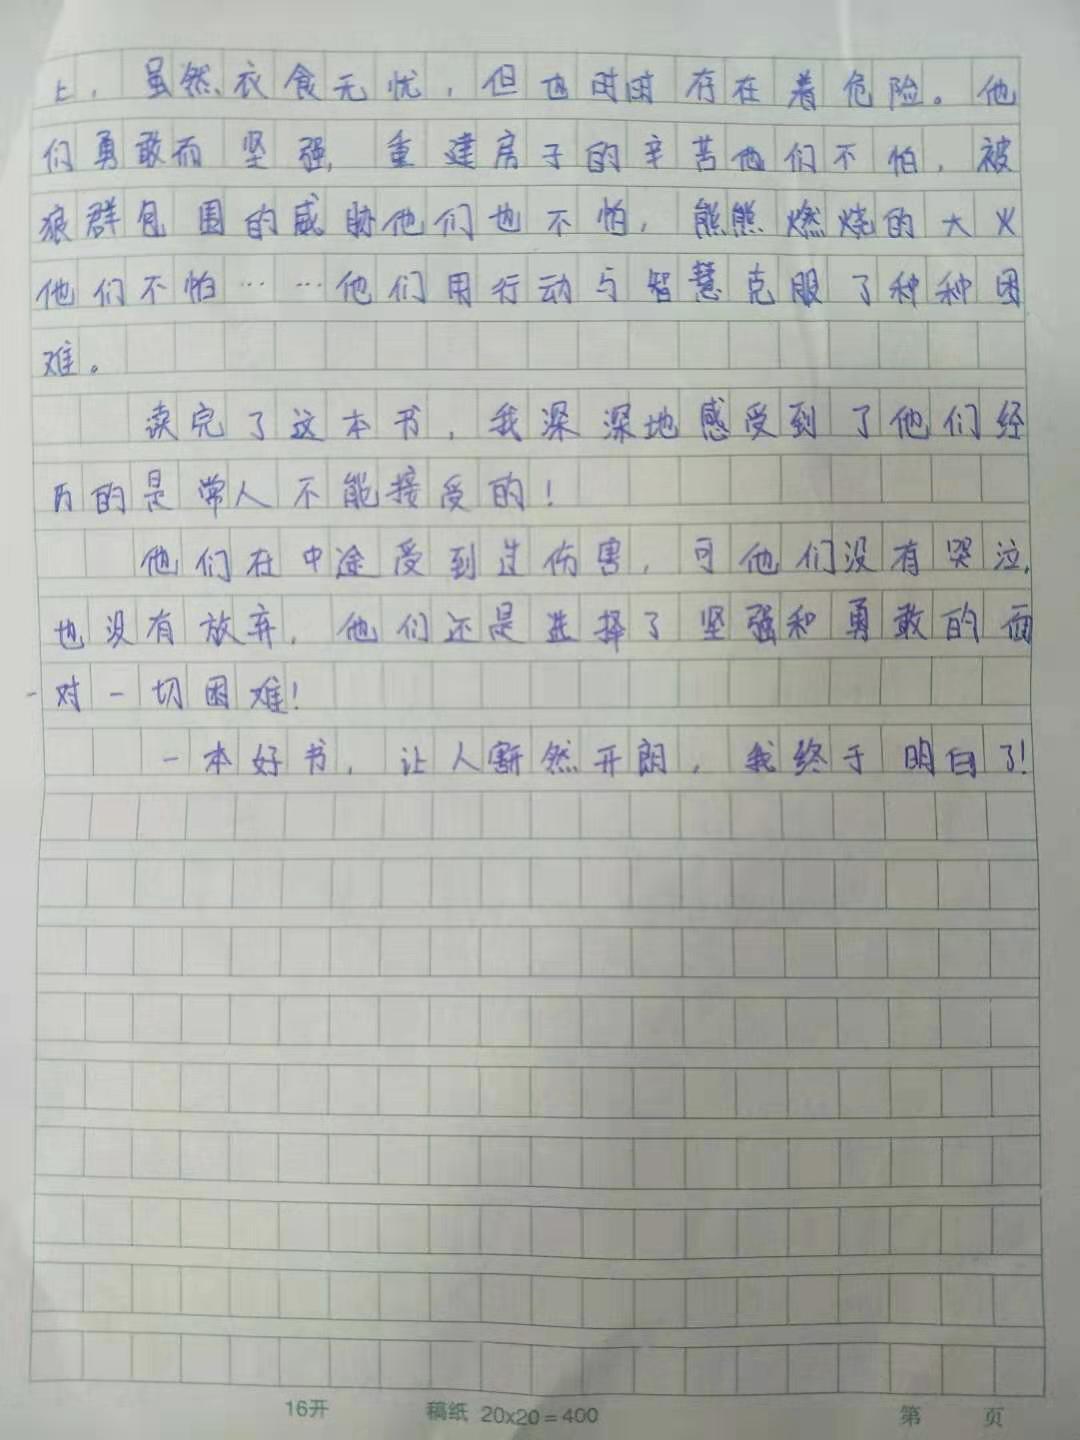 上，虽然衣食无忧，但也时时存在着危险。他
们勇敢而坚强，重建房子的辛苦他们不怕，被
狼群包围的威胁他们也不怕，熊熊燃烧的大火
他们不怕……他们用行动与智慧克服了种种困
难。
读完了这本书，我深深地感受到了他们经
历的是常人不能接受的！
他们在中途受到过伤害，可他们没有哭泣，
也没有放弃，他们还是选择了坚强和勇敢的面
对一切困难！
一本好书，让人豁然开朗，我终于明白了！
16开 稿纸 20x20=400 第 页